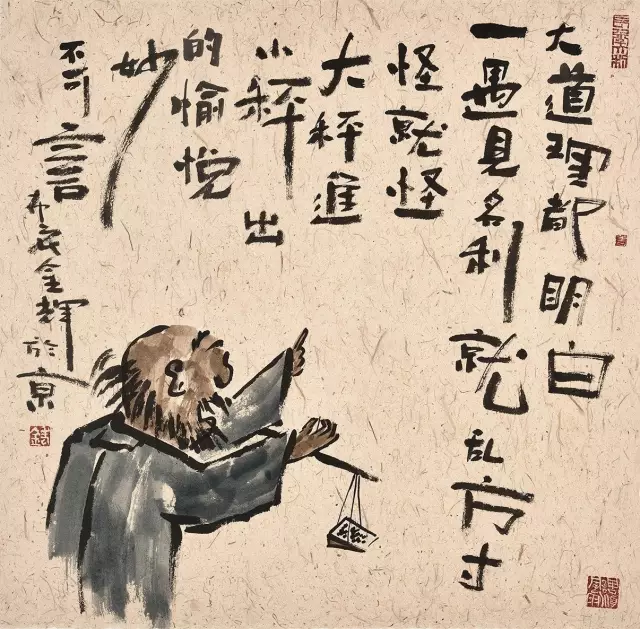 大道理都明白
一遇見名利就乱方寸
怪就怪
大秤進
小秤出
的愉悦
妙
不可言
布衣金輝於京